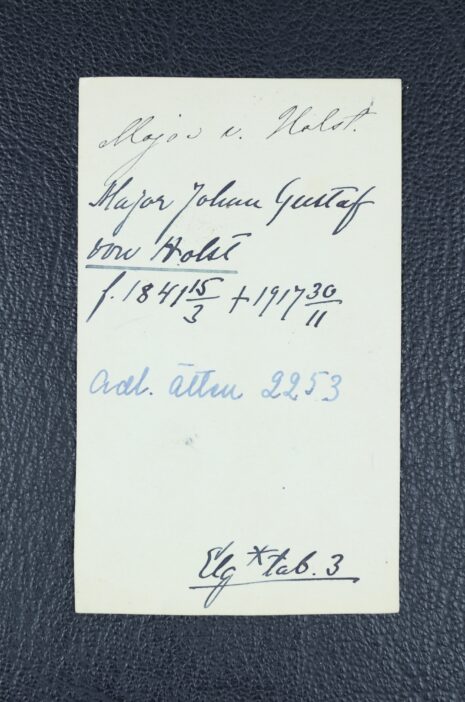 Major v. Holst.
Major Johan Gustaf
von Holst
f. 1841 15/3 + 1917 30/11
adl. ätten 2253
Elg * tab. 3